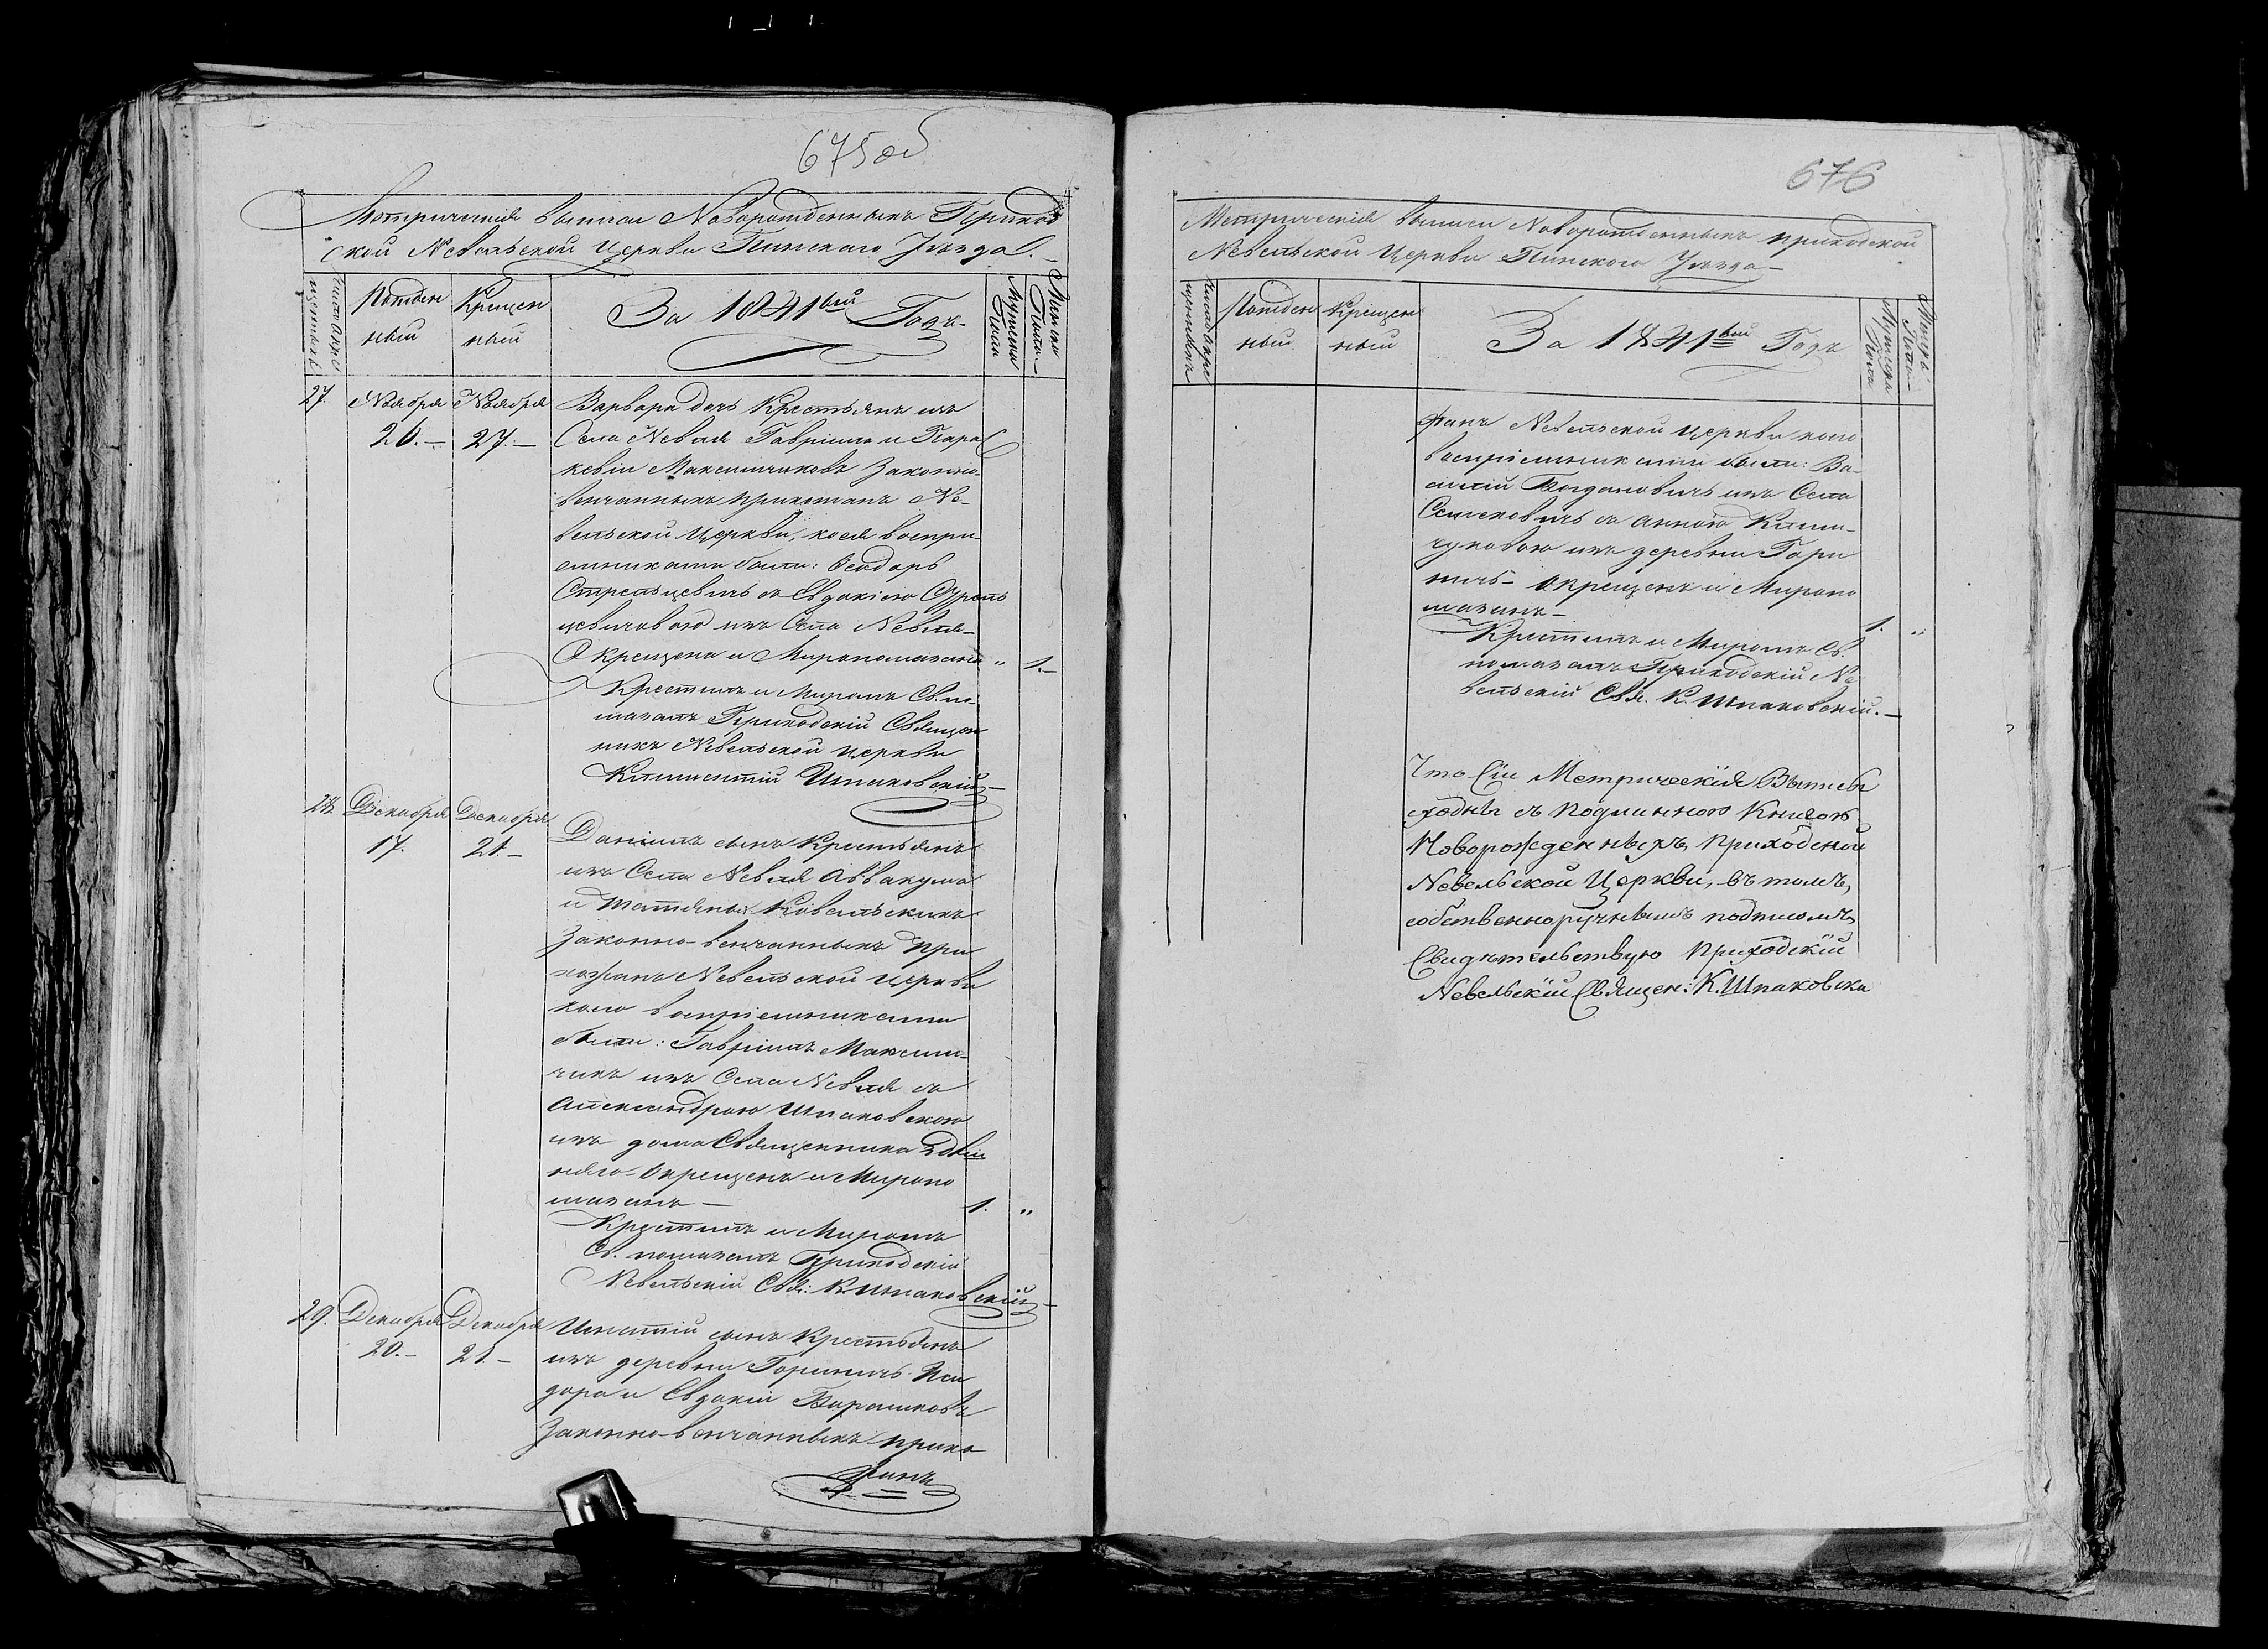 675 об
Метрическія выписи Новорожденныхъ Приход
ской Невельской Церкви Пинскаго Уѣзда.
Рожден
ный
Крещен
ный
За 1841вый Годъ
Мужеска
Пола
Женска
Пола
27.
Ноября
20.
Ноября
27.
Варвара дочь Крестьянъ изъ
Села Невля Гавріила и Парас
кевіи Максимчиковъ Законно
венчанныхъ прихожанъ Не-
вельской Церкви, коея воспрі
емниками были: Ѳеодоръ
Стрельцевичъ съ Евдокіею Стрель
цевичовою изъ Села Невля
Окрещена и Миропомазана " 1.
Крестилъ и Миромъ Св. по-
мазалъ Приходскій Священ
никъ Невельской Церкви
Климентій Шпаковскій
28.
Декабря
17.
Декабря
21.
Даніилъ сынъ Крестьянъ
изъ Села Невля Аввакума
и Татіяны Ковельскихъ
Законно-венчанныхъ при
хожанъ Невельской Церкви
коего воспріемниками
были: Гавріилъ Максим-
чикъ изъ Села Невля съ
Александрою Шпаковскою
изъ дома Священника
Окрещенъ и Миропо
мазанъ 1. "
Крестилъ и Миромъ
Св. помазалъ Приходскій
Невельскій Свя: К. Шпаковскій
29.
Декабря
20.
Декабря
21.
Игнатій сынъ Крестьянъ
изъ деревни Горичичъ Иси
дора и Евдокіи
Законно-венчанныхъ прихо
жанъ
676
Метрическія выписи Новорожденныхъ приходской
Невельской Церкви Пинскаго Уѣзда
Рожден
ный
Крещен
ный
За 1841вый Годъ
Мужеска
Пола
Женска
Пола
жанъ Невельской Церкви коего
воспріемниками были: Ва-
силій Богдановичъ изъ Села
Семеховичъ съ Анною Клим-
чуковою изъ деревни Гори
чичъ Окрещенъ и Миропо
мазанъ 1. "
Крестилъ и Миромъ Св.
помазалъ Приходскій Не
вельскій Свя. К. Шпаковскій.
Что Сіи Метрическія Выписы
сходны съ подлинною Книгою
Новорожденныхъ Приходской
Невельской Церкви, въ томъ,
собственноручнымъ подписомъ
Свидѣтельствую Приходскій
Невельскій Священ: К. Шпаковскі